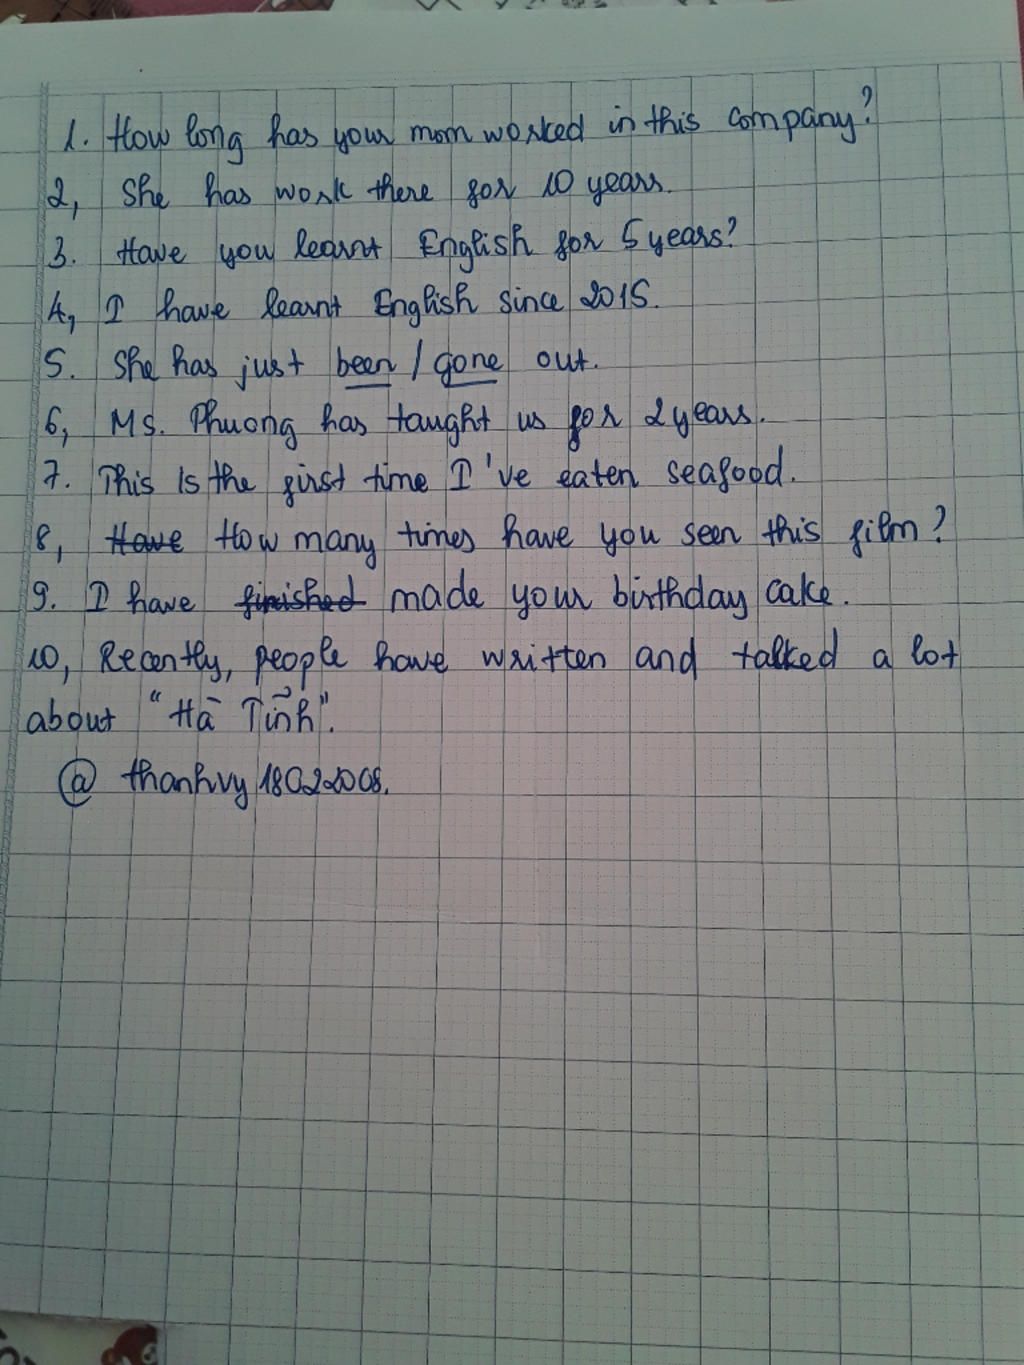 1. How long has your mom worked in this company?
2, She has work there for 10 years.
3. Have you learnt English for 5 years?
4, I have learnt English since 2015.
5. She has just been / gone out.
6, Ms. Phuong has taught us for 2 years.
7. This Is the first time I've eaten seafood.
8, Have How many times have you seen this film?
9. I have finished made your birthday cake.
10, Recently, people have written and talked a lot
about "Hà Tĩnh".
@ thanhvy18022008.